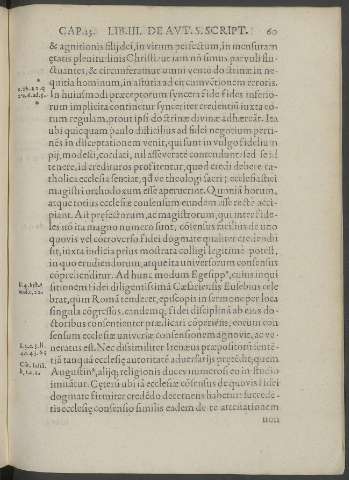 CAP. 15. LIB. III. DE AVT. S. SCRIPT. 60
& agnitionis filij dei, in virum perfectum, in mensuram
ętatis plenitudinis Christi: vt iam nō simus paruuli flu-
ctuantes, & circumferamur omni vento doctrinæ in ne-
quitia hominum, in astutia ad circumuētionem erroris.
In huiusmodi præceptorum syncera fide fides inferio-
rum implicita continetur synceriter credentiū iuxta eo-
rum regulam, prout ipsi doctrinæ diuinæ adhærēt. Ita
vbi quicquam paulo difficilius ad fidei negotium perti-
nēs in disceptationem venit, qui sunt in vulgo fidelium
pij, modesti, cordati, nil asseuerātè contendunt: sed se id
tenere, id credituros profitentur, quod credi debere ca-
tholica ecclesia sentiat, qđ ve theologi sacri, ecclesiastici
magistri orthodoxum esse aperuerint. Quoniā horum,
atque totius ecclesiæ consensum eundem esse recte acci-
piant. At præfectorum, ac magistrorum, qui inter fide-
les nō ita magno numero sunt, cōsensus facilius de vno
quouis vel cōtrouerso fidei dogmate qualiter credendū
sit, iuxta indicia prius mostrata colligi legitimè potest,
in quo erudiendorum, atque ita vniuersorum consensus
cōprehenditur. Ad hunc modum Egesipp⁹, cuius inqui-
sitionem fidei diligentissimā Cæsariensis Eusebius cele-
brat, quum Romā tenderet, episcopis in sermone per loca
singula cōgressus, eandemq́; fidei disciplinā ab eius do-
ctoribus consentienter prædicari cōperiēns, eorum con-
sensum ecclesiæ vniuersæ consensionem agnouit, ac ve-
neratus est. Nec dissimiliter Irenæus præpositorū sentē-
tiā tanquā ecclesię autoritatē aduersarijs prętēdit, quem
Augustin⁹, alijq; religionis duces numeroso in studio
imitātur. Cęterū vbi iā ecclesiæ cōsensus de quouis fidei
dogmate firmiter credēdo detectus habetur: succede-
tis ecclesię consensio similis eadem de re attestationem
non